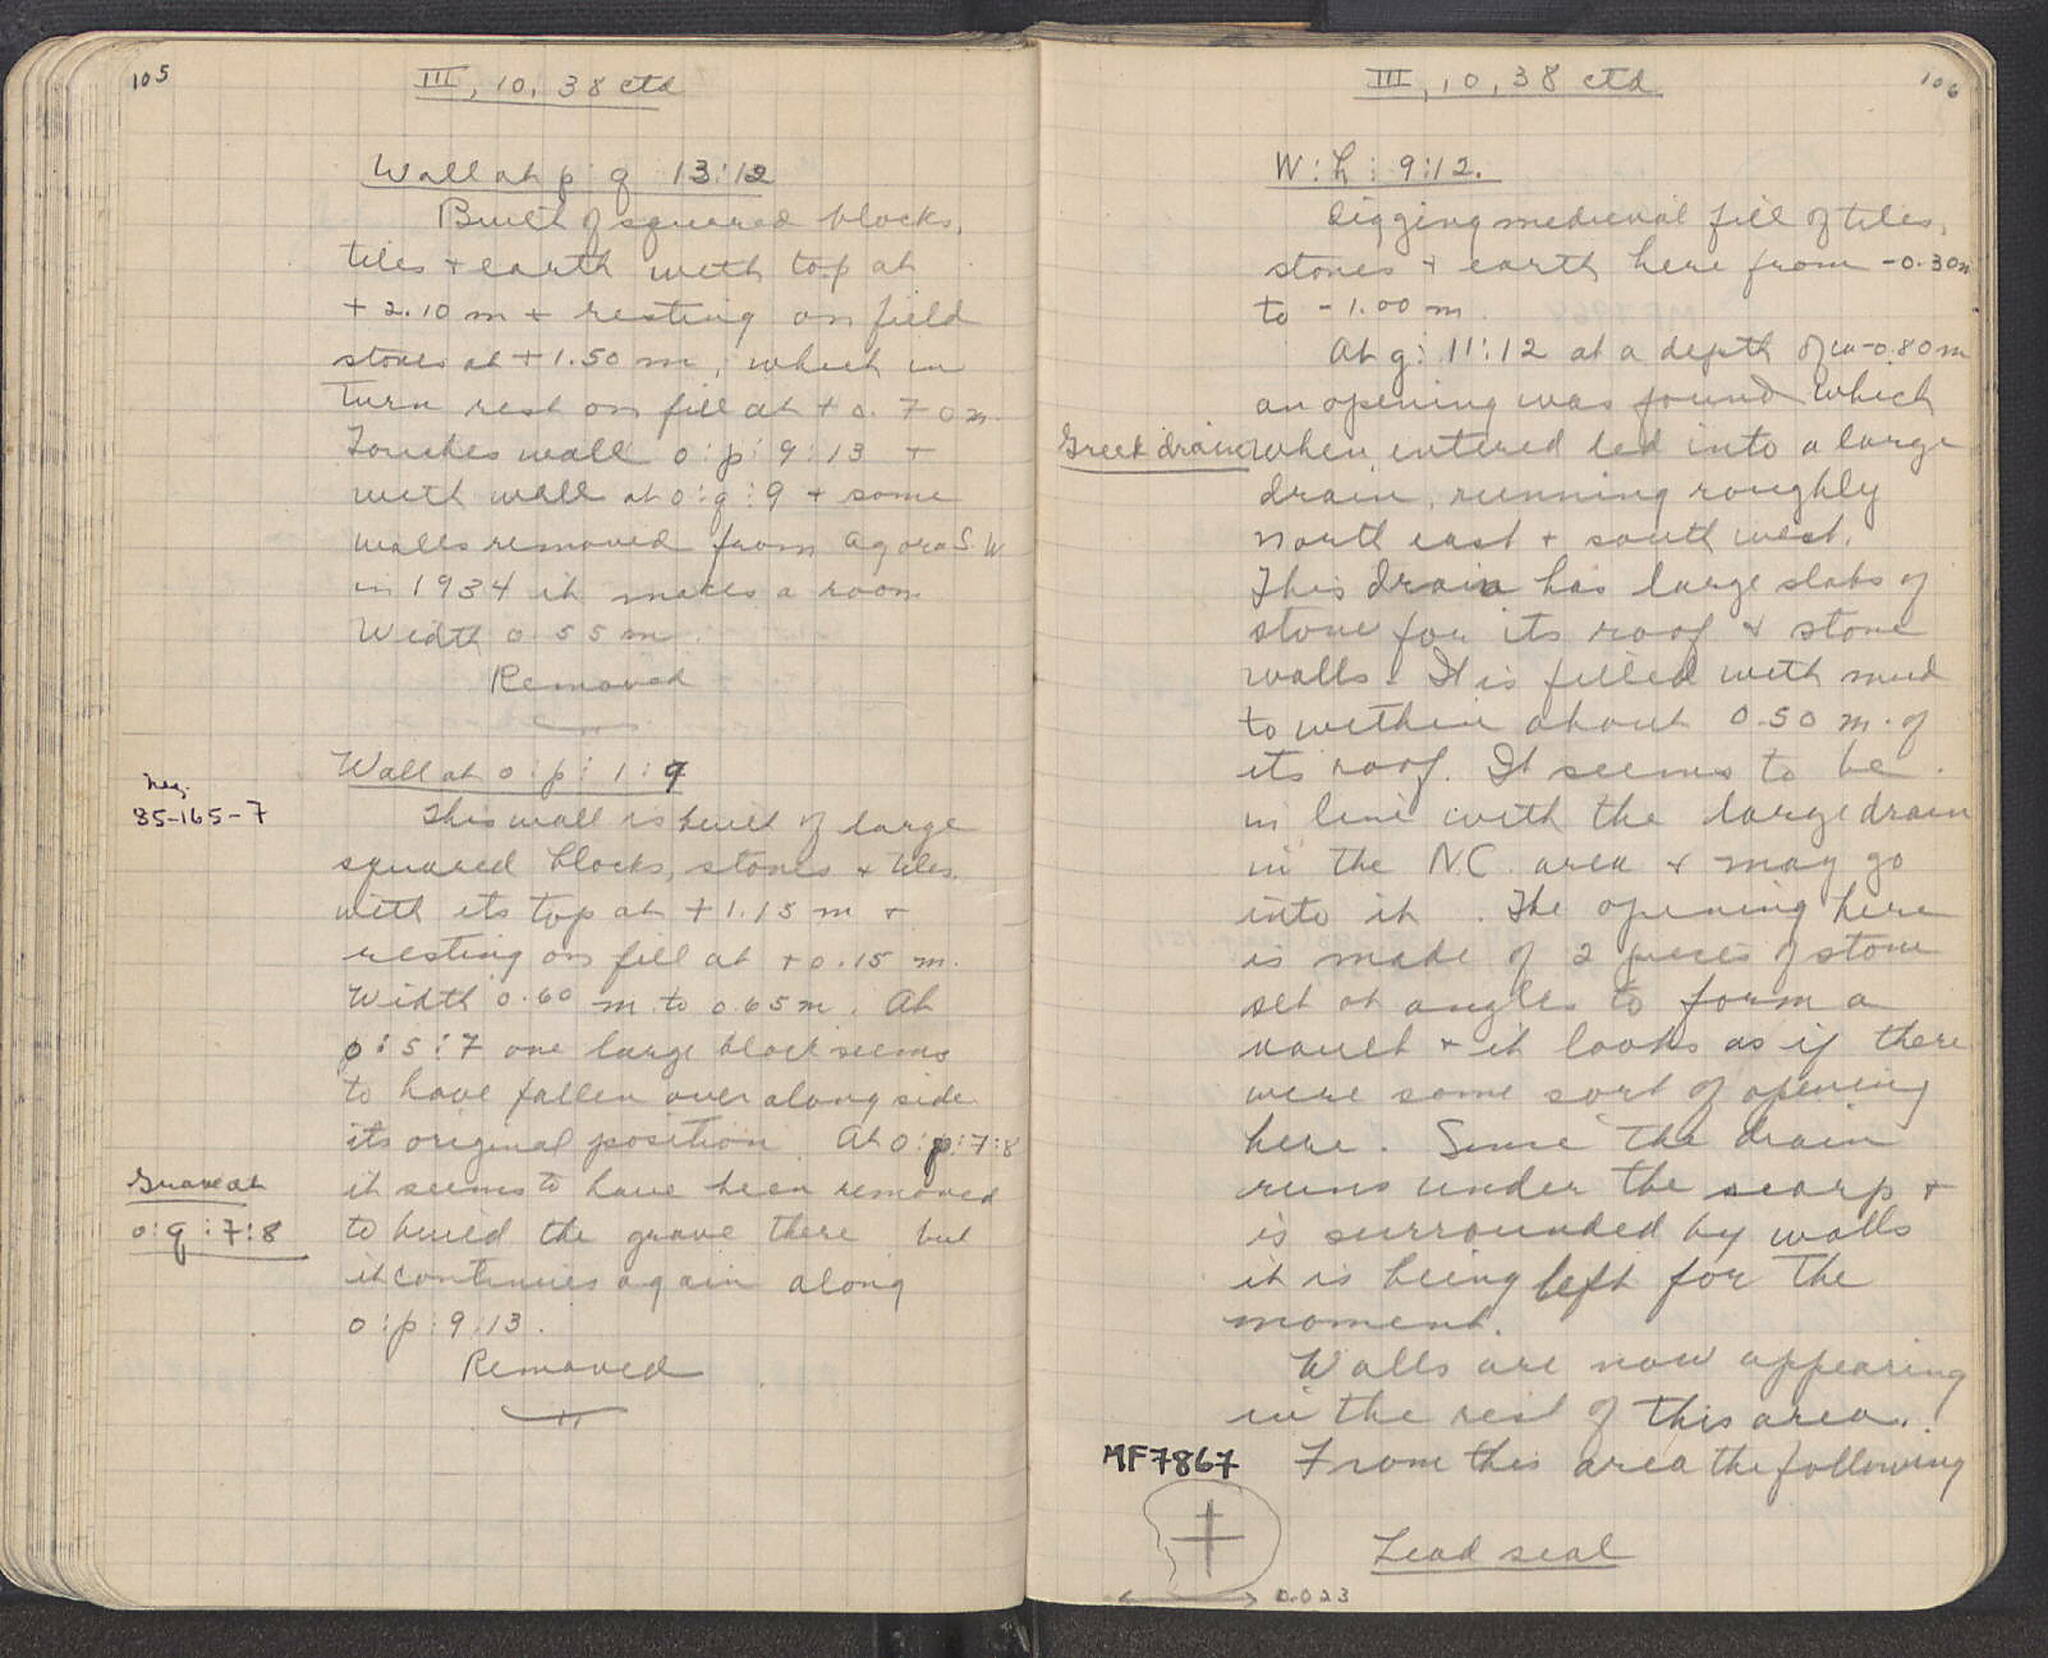 105
III, 10, 38 ctd
Wall at p : q 13:12
Built of squared blocks,
tiles + earth with top at
+ 2.10 m + resting on field
stones at + 1.50 m, which in
turn rest on fill at + 0.70 m.
Touches wall o:p:9:13 +
with wall at o:q:9 + some
walls removed from Agora S.W
in 1934 it makes a room
Width 0.55 m.
Removed
Wall at o:p:1:9
neg.
85-165-7
This wall is built of large
squared blocks, stones + tiles
with its top at + 1.15 m +
resting on fill at + 0.15 m.
Width 0.60 m to 0.65 m. At
p:5:7 one large block seems
to have fallen over along side
its original position. At o:p:7:8
Grave at
o:q:7:8
it seems to have been removed
to build the grave there but
it continues again along
o:p:9:13.
Removed
106
III, 10, 38 ctd
W:h:9:12.
Digging medieval fill of tiles,
stones + earth here from -0.30m
to -1.00 m.
At g:11:12 at a depth of ca -0.80 m
an opening was found which
Greek drain
when entered led into a large
drain, running roughly
north east + south west.
This drain has large slabs of
stone for its roof + stone
walls. It is filled with mud
to within about 0.50 m. of
its roof. It seems to be
in line with the large drain
in the N.C. area + may go
into it. The opening here
is made of 2 pieces of stone
set at angles to form a
vault + it looks as if there
were some sort of opening
here. Since the drain
runs under the scarp +
is surrounded by walls
it is being left for the
moment.
Walls are now appearing
in the rest of this area.
MF7867
From this area the following
Lead seal
0.023